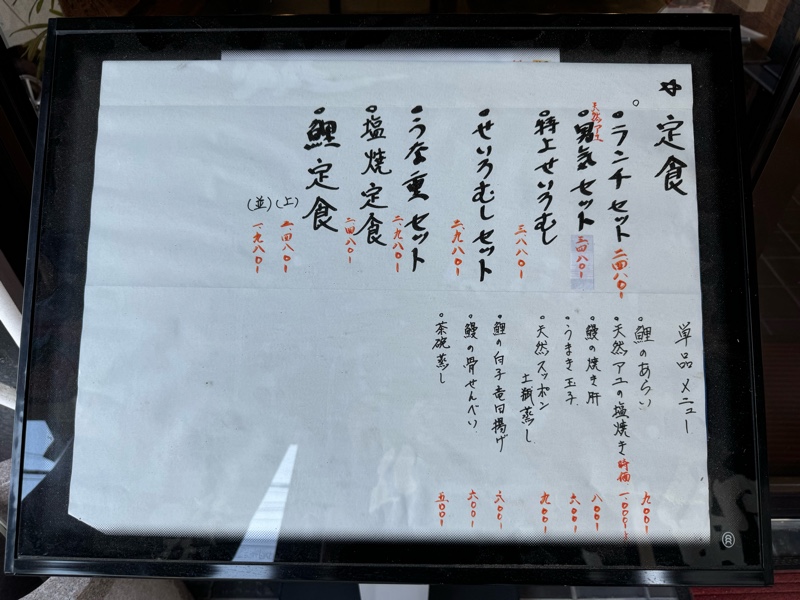 定食
ランチセット 二四八〇ー
天然アユ
勇気セット 三四八〇ー
特上せいろむし 三八八〇ー
せいろむしセット 二、九八〇ー
うな重セット 二、九八〇ー
塩焼定食 二四八〇ー
鯉定食
(上) 二、四八〇ー
(並) 一、九八〇ー
単品メニュー
鯉のあらい 九〇〇ー
天然アユの塩焼き 時価 一、〇〇〇ー
鰻の焼き肝 八〇〇ー
うまき玉子 六〇〇ー
天然スッポン
土瓶蒸し 九〇〇ー
鯉の白子竜田揚げ 六〇〇ー
鰻の骨せんべい 六〇〇ー
茶碗蒸し 五〇〇ー